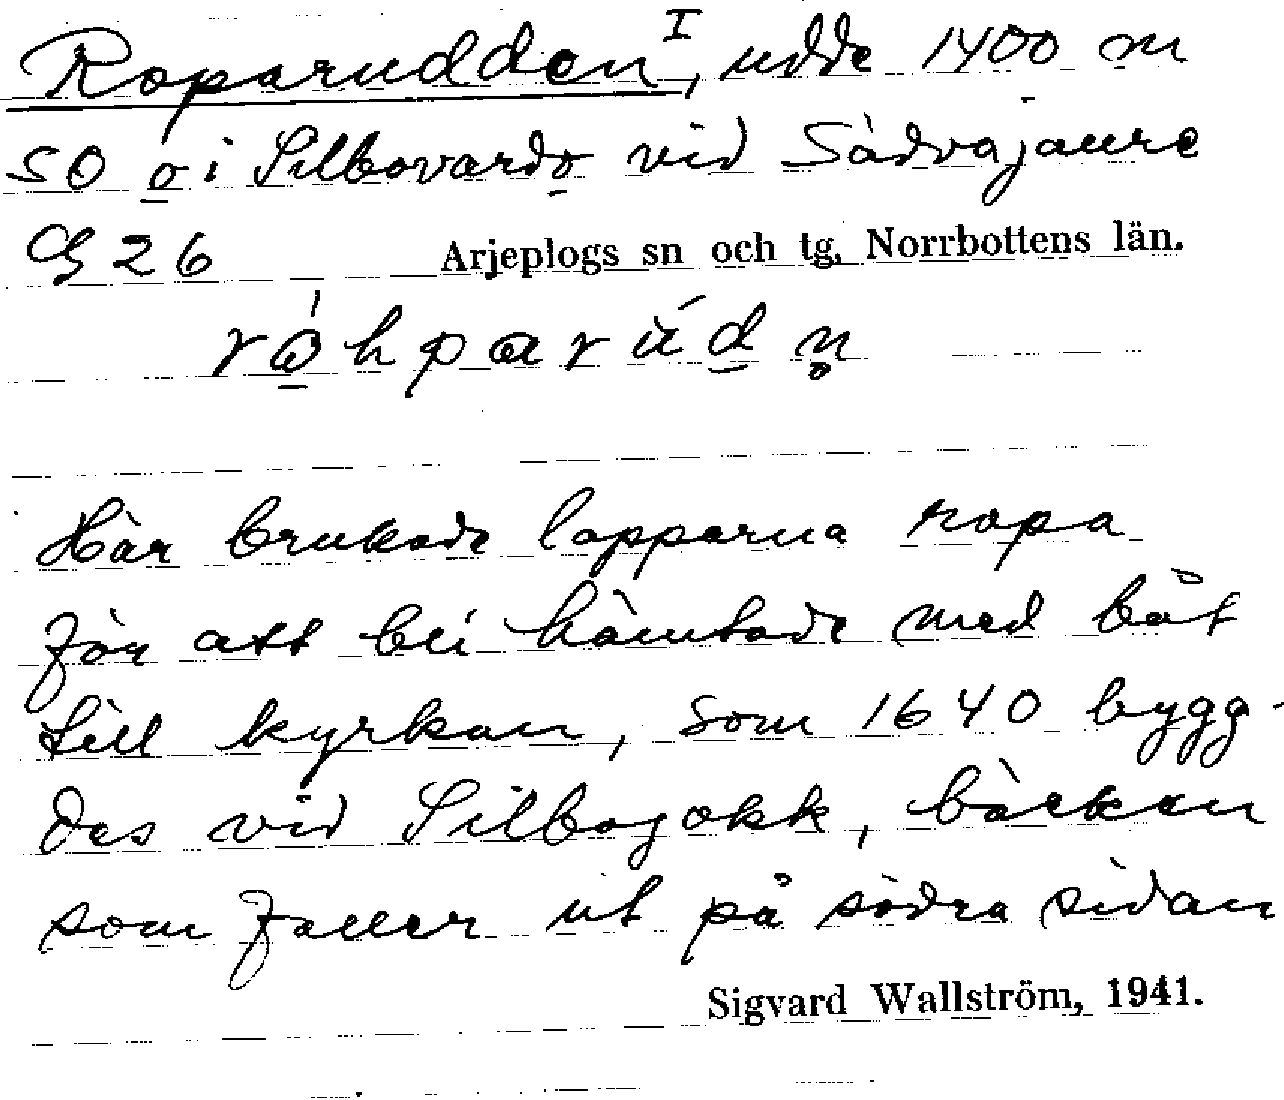 Roparudden I, udde 1400 m
SO o i Silbovardo vid Sädvajaure
G 26 Arjeplogs sn och tg, Norrbottens län.
Här brukade lapparna ropa
för att bli hämtade med båt
till kyrkan, som 1640 bygg-
des vid Silbojokk, bäcken
som faller ut på södra sidan
Sigvard Wallström, 1941.